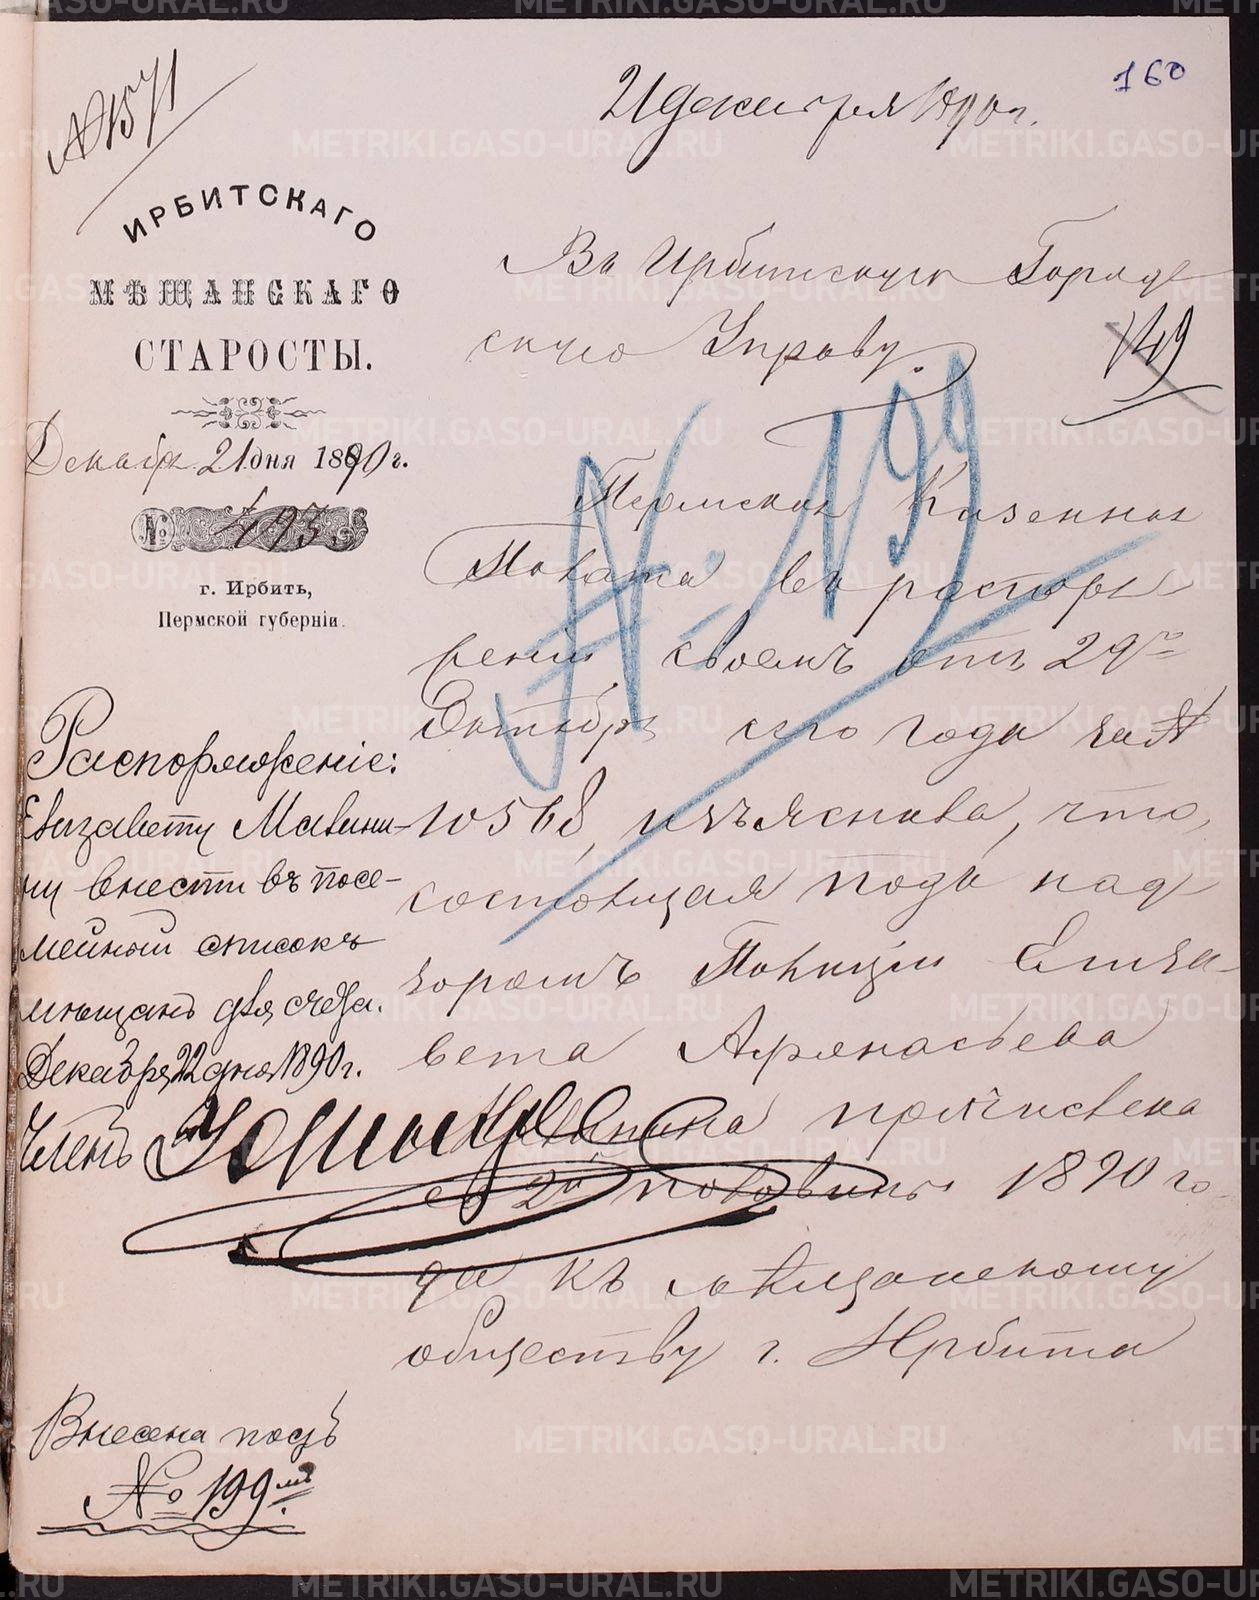 160
№ 1571
21 декабря 1890 г.
ИРБИТСКАГО
МѢЩАНСКАГО
СТАРОСТЫ.
Декабря 21 дня 1890 г.
№ 493
г. Ирбить,
Пермской губерніи.
Въ Ирбитскую Городс
скую Управу.
149
№ 199
Пермская Казенная
Палата въ распоря
женіи своемъ отъ 29го
Октября сего года за №
10568, изъяснила, что,
состоящая подъ над
зоромъ Полиціи Елиза-
вета Афанасьева
причислена
со 2й половины 1890 го-
да къ мѣщанскому
обществу г. Ирбита
Распоряженіе:
Елизавету
внести въ посе-
мейный списокъ
мѣщанъ для счета.
Декабря 22 дня 1890 г.
Членъ
Внесена подъ
№ 199мъ
METRIKI.GASO-URAL.RU